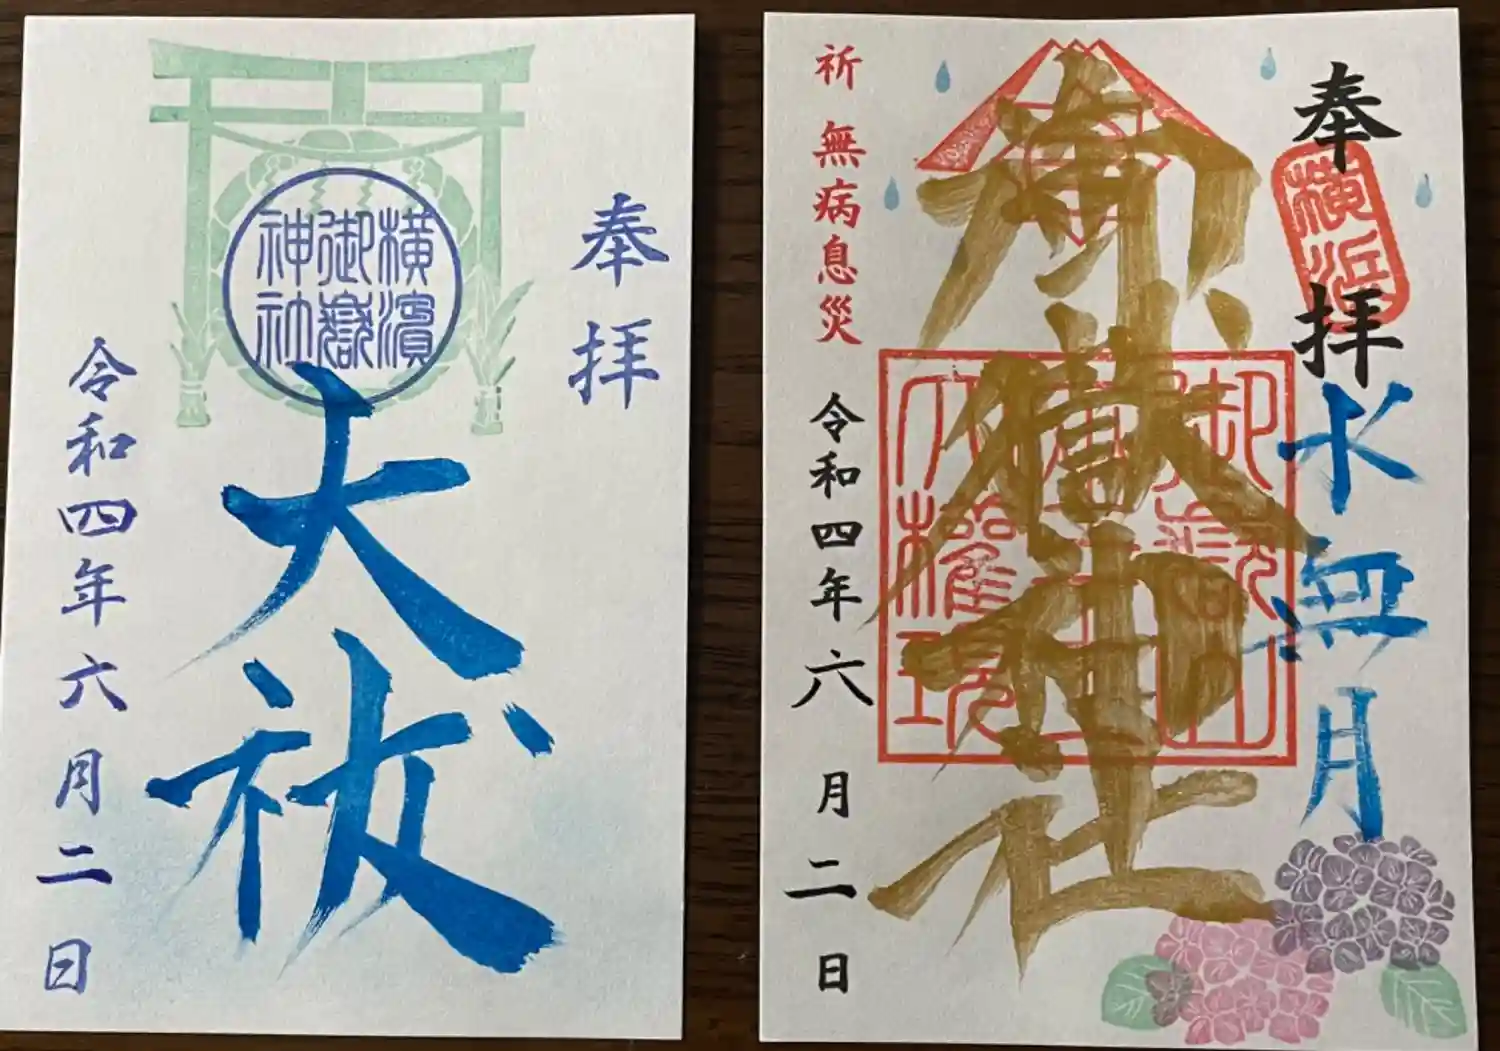 奉拝
横濱
御嶽
神社
大祓
令和四年六月二日
奉拝
横浜
水無月
御嶽神社
御嶽山
大権現
祈 無病息災
令和四年六月二日